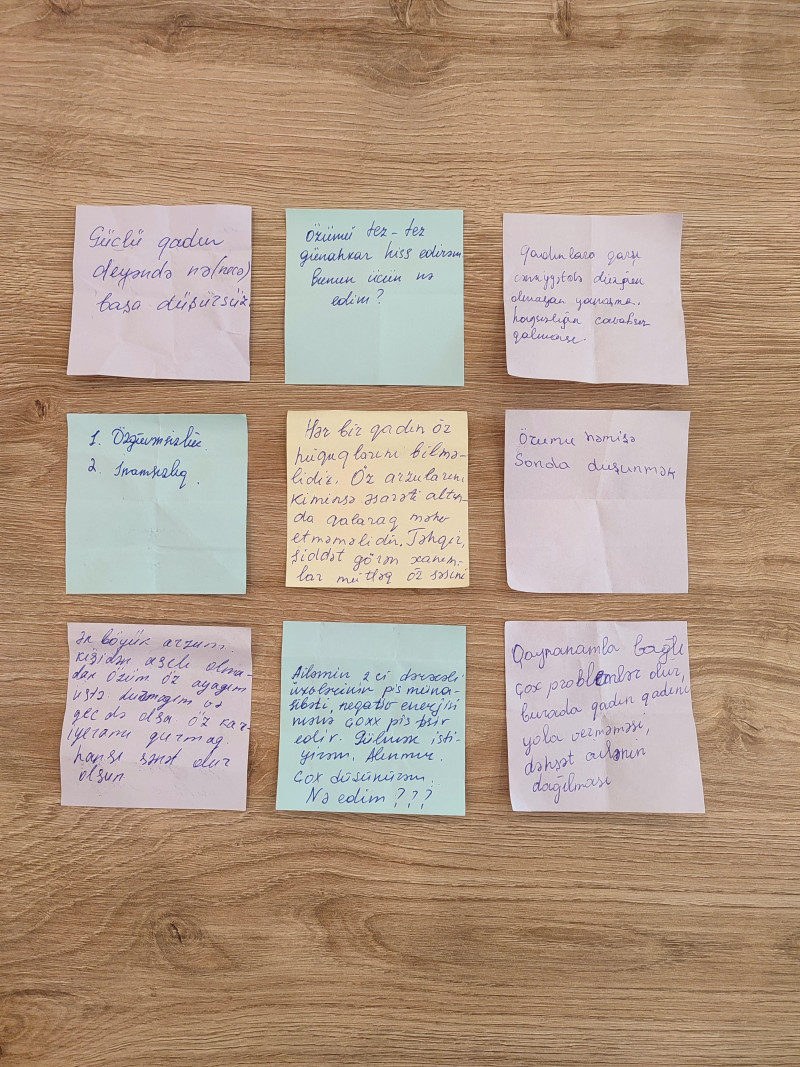 Güclü qadın
deyəndə nə(necə)
başa düşürsüz
Özümü tez-tez
günahkar hiss edirəm
Bunun üçün nə
edim?
Qadınlara qarşı
cəmiyyətdə düzgün
olmayan yanaşma.
haqsızlığın cavabsız
qalması.
1. Özgüvənsizlik
2. İnamsızlıq.
Hər bir qadın öz
hüquqlarını bilmə-
lidir. Öz arzularını
kiminsə əsarəti altın-
da qalaraq məhv
etməməlidir. Təhqir,
şiddət görən xanım-
lar mütləq öz səsini
Özümü həmişə
Sonda düşünmək
Ən böyük arzum.
kişidən asılı olma-
dan özüm öz ayağım
üstə durmağım və
gec də olsa öz kar-
iyeramı qurmaq.
hansı sənət olur
olsun
Ailəmin 2 ci dərəcəli
üzvlərinin pis müna-
sibəti, negativ enerjisi
mənə çoxx pis təsir
edir. Gülmək isti-
yirəm. Alınmır.
Çox düşünürəm.
Nə edim???
Qaynanamla bağlı
çox problemlər olur,
burada qadın qadını
yola verməməsi,
dəhşət ailənin
dağılması